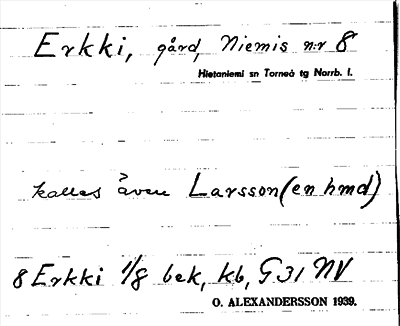 Erkki, gård, Niemis n:r 8
Hietaniemi sn Torneå tg Norrb. l.
kallas även Larsson (en hmd)
8 Erkki 1/8 bek, kb, G31 NV
O. ALEXANDERSSON 1939.